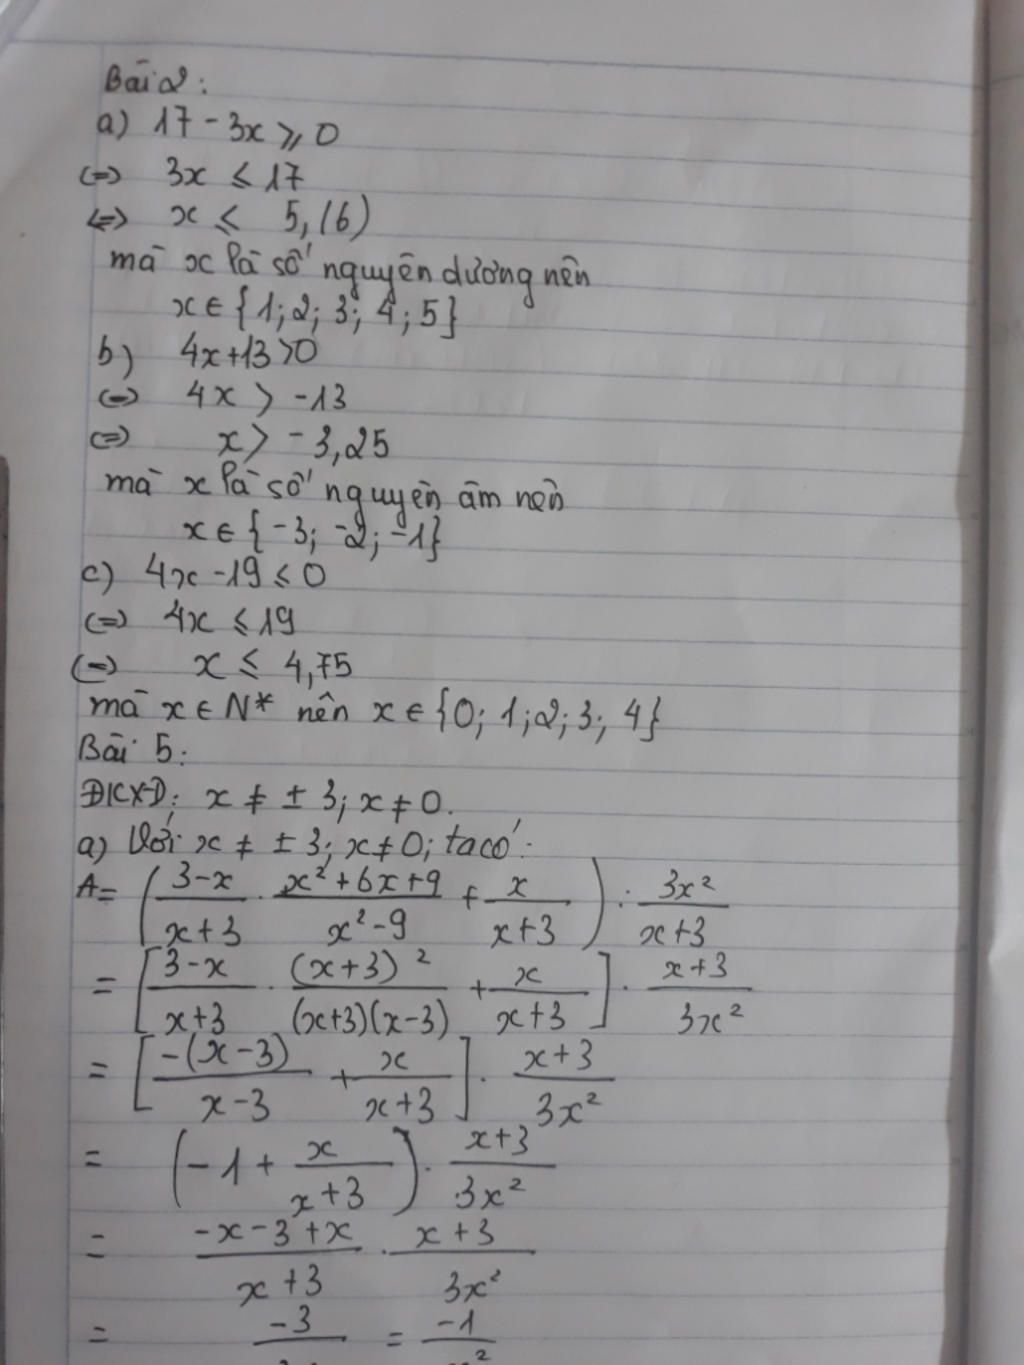 Bài 2:
a) 17 - 3x ⩾ 0
(=) 3x ⩽ 17
(=) x ⩽ 5,(6)
mà x là số nguyên dương nên
x ∈ {1; 2; 3; 4; 5}
b) 4x+13 >0
(=) 4x > -13
(=) x > -3,25
mà x là số nguyên âm nên
x ∈ {-3; -2; -1}
c) 4x -19 ⩽ 0
(=) 4x ⩽ 19
(=) x ⩽ 4,75
mà x ∈ N* nên x ∈ {0; 1; 2; 3; 4}
Bài 5:
ĐKXĐ: x ≠ ± 3; x ≠ 0.
a) Với x ≠ ± 3; x ≠ 0; ta có:
A = ( (3-x)/(x+3) . (x²+6x+9)/(x²-9) + x/(x+3) ) : 3x²/(x+3)
= [ (3-x)/(x+3) . (x+3)²/((x+3)(x-3)) + x/(x+3) ] . (x+3)/3x²
= [ -(x-3)/(x-3) + x/(x+3) ] . (x+3)/3x²
= ( -1 + x/(x+3) ) . (x+3)/3x²
= (-x-3+x)/(x+3) . (x+3)/3x²
= -3 = -1